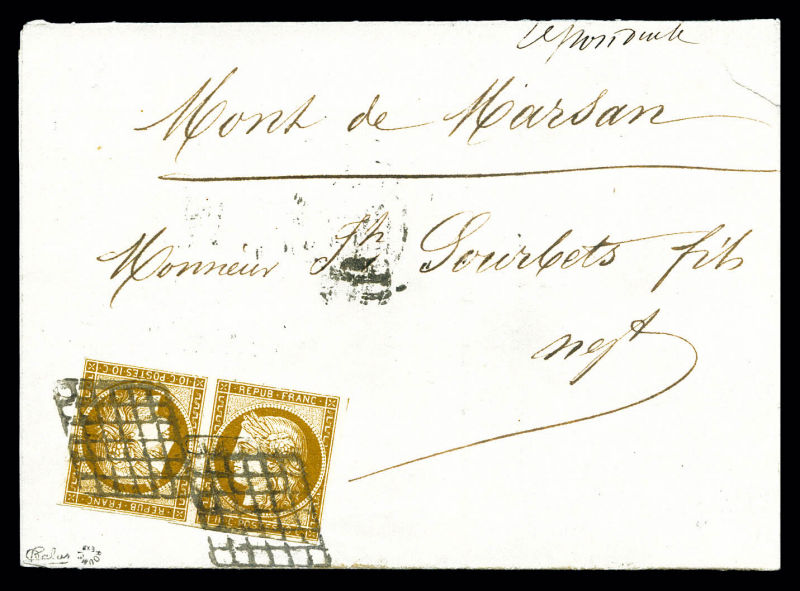 Mont de Marsan
Monsieur Jh Sourbets fils
negt
10 C. POSTES 10 C.
REPUB FRANC
REPUB FRANC
Calves